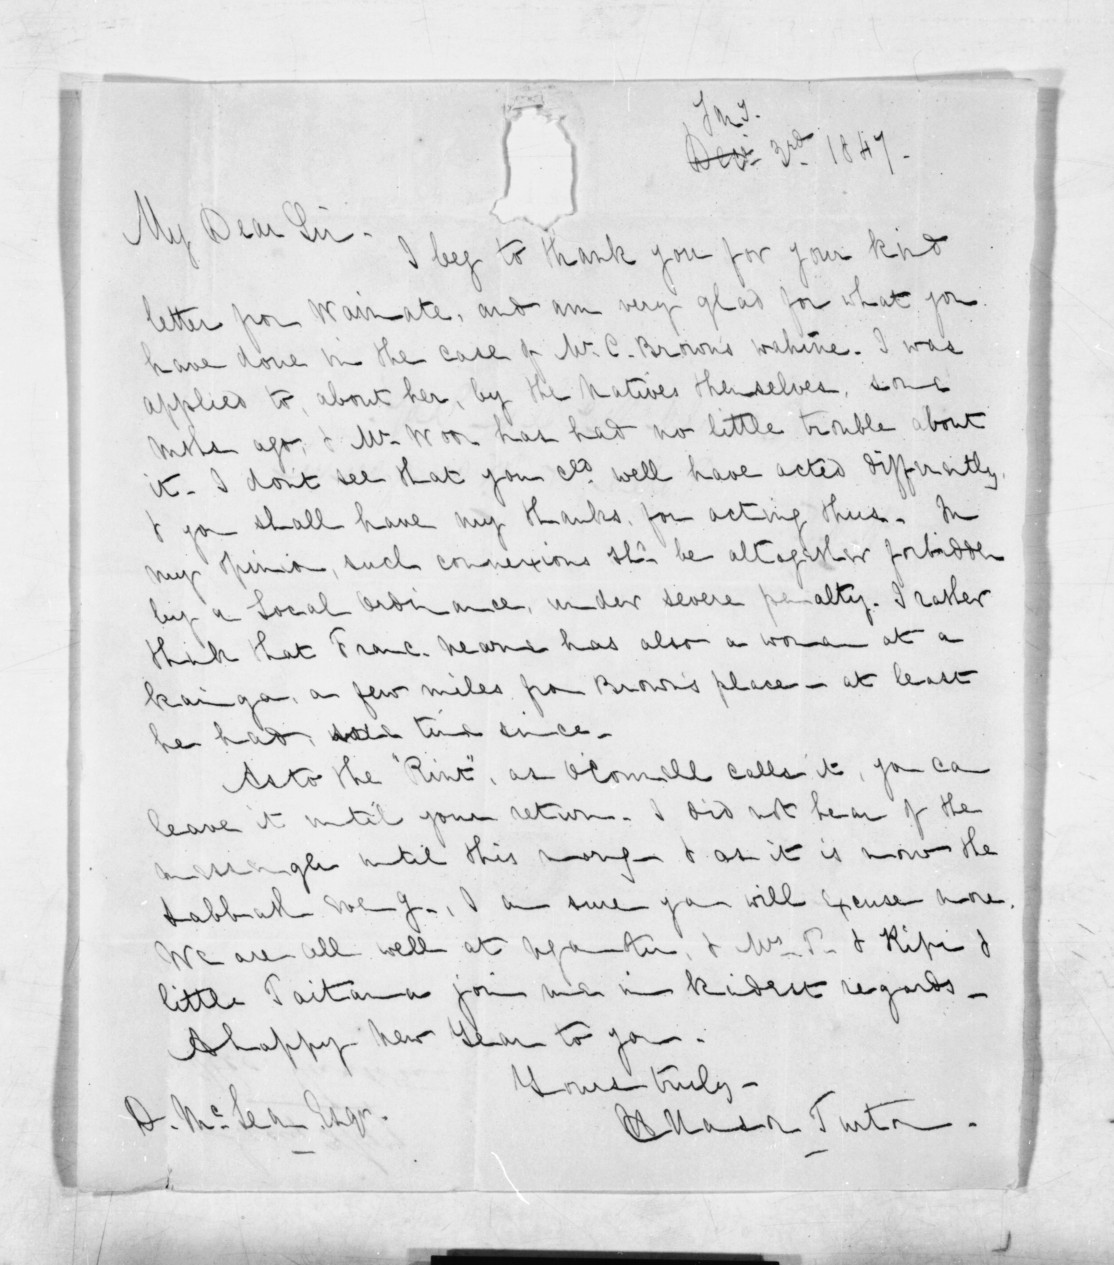 Jny.
Decr. 3rd. 1847.
My Dear Sir.
I beg to thank you for your kind
letter from Waimate, and am very glad for what you
have done in the case of Mr. C. Brown's wahine. I was
applied to, about her, by the Natives themselves, some
mths ago, & Mr. Woon has had no little trouble about
it. I don't see that you cld. well have acted differently,
& you shall have my thanks, for acting thus. In
my opinion, such connexions shd. be altogether forbidden
by a Local Ordinance, under severe penalty. I rather
think that Franc. has also a woman at a
kainga, a few miles from Brown's place - at least
he had, time since.
As to the "Rint", as O'Connell calls it, you can
leave it until your return. I did not hear of the
messenger until this morng. & as it is now the
Sabbath eveng., I am sure you will excuse more.
We are all well at Ngamotu, & Mrs. T. & Kipi &
little Taitana join me in kindest regards -
A happy New Year to you.
Yours truly -
H Hanson Turton.
D. McLean Esqr.